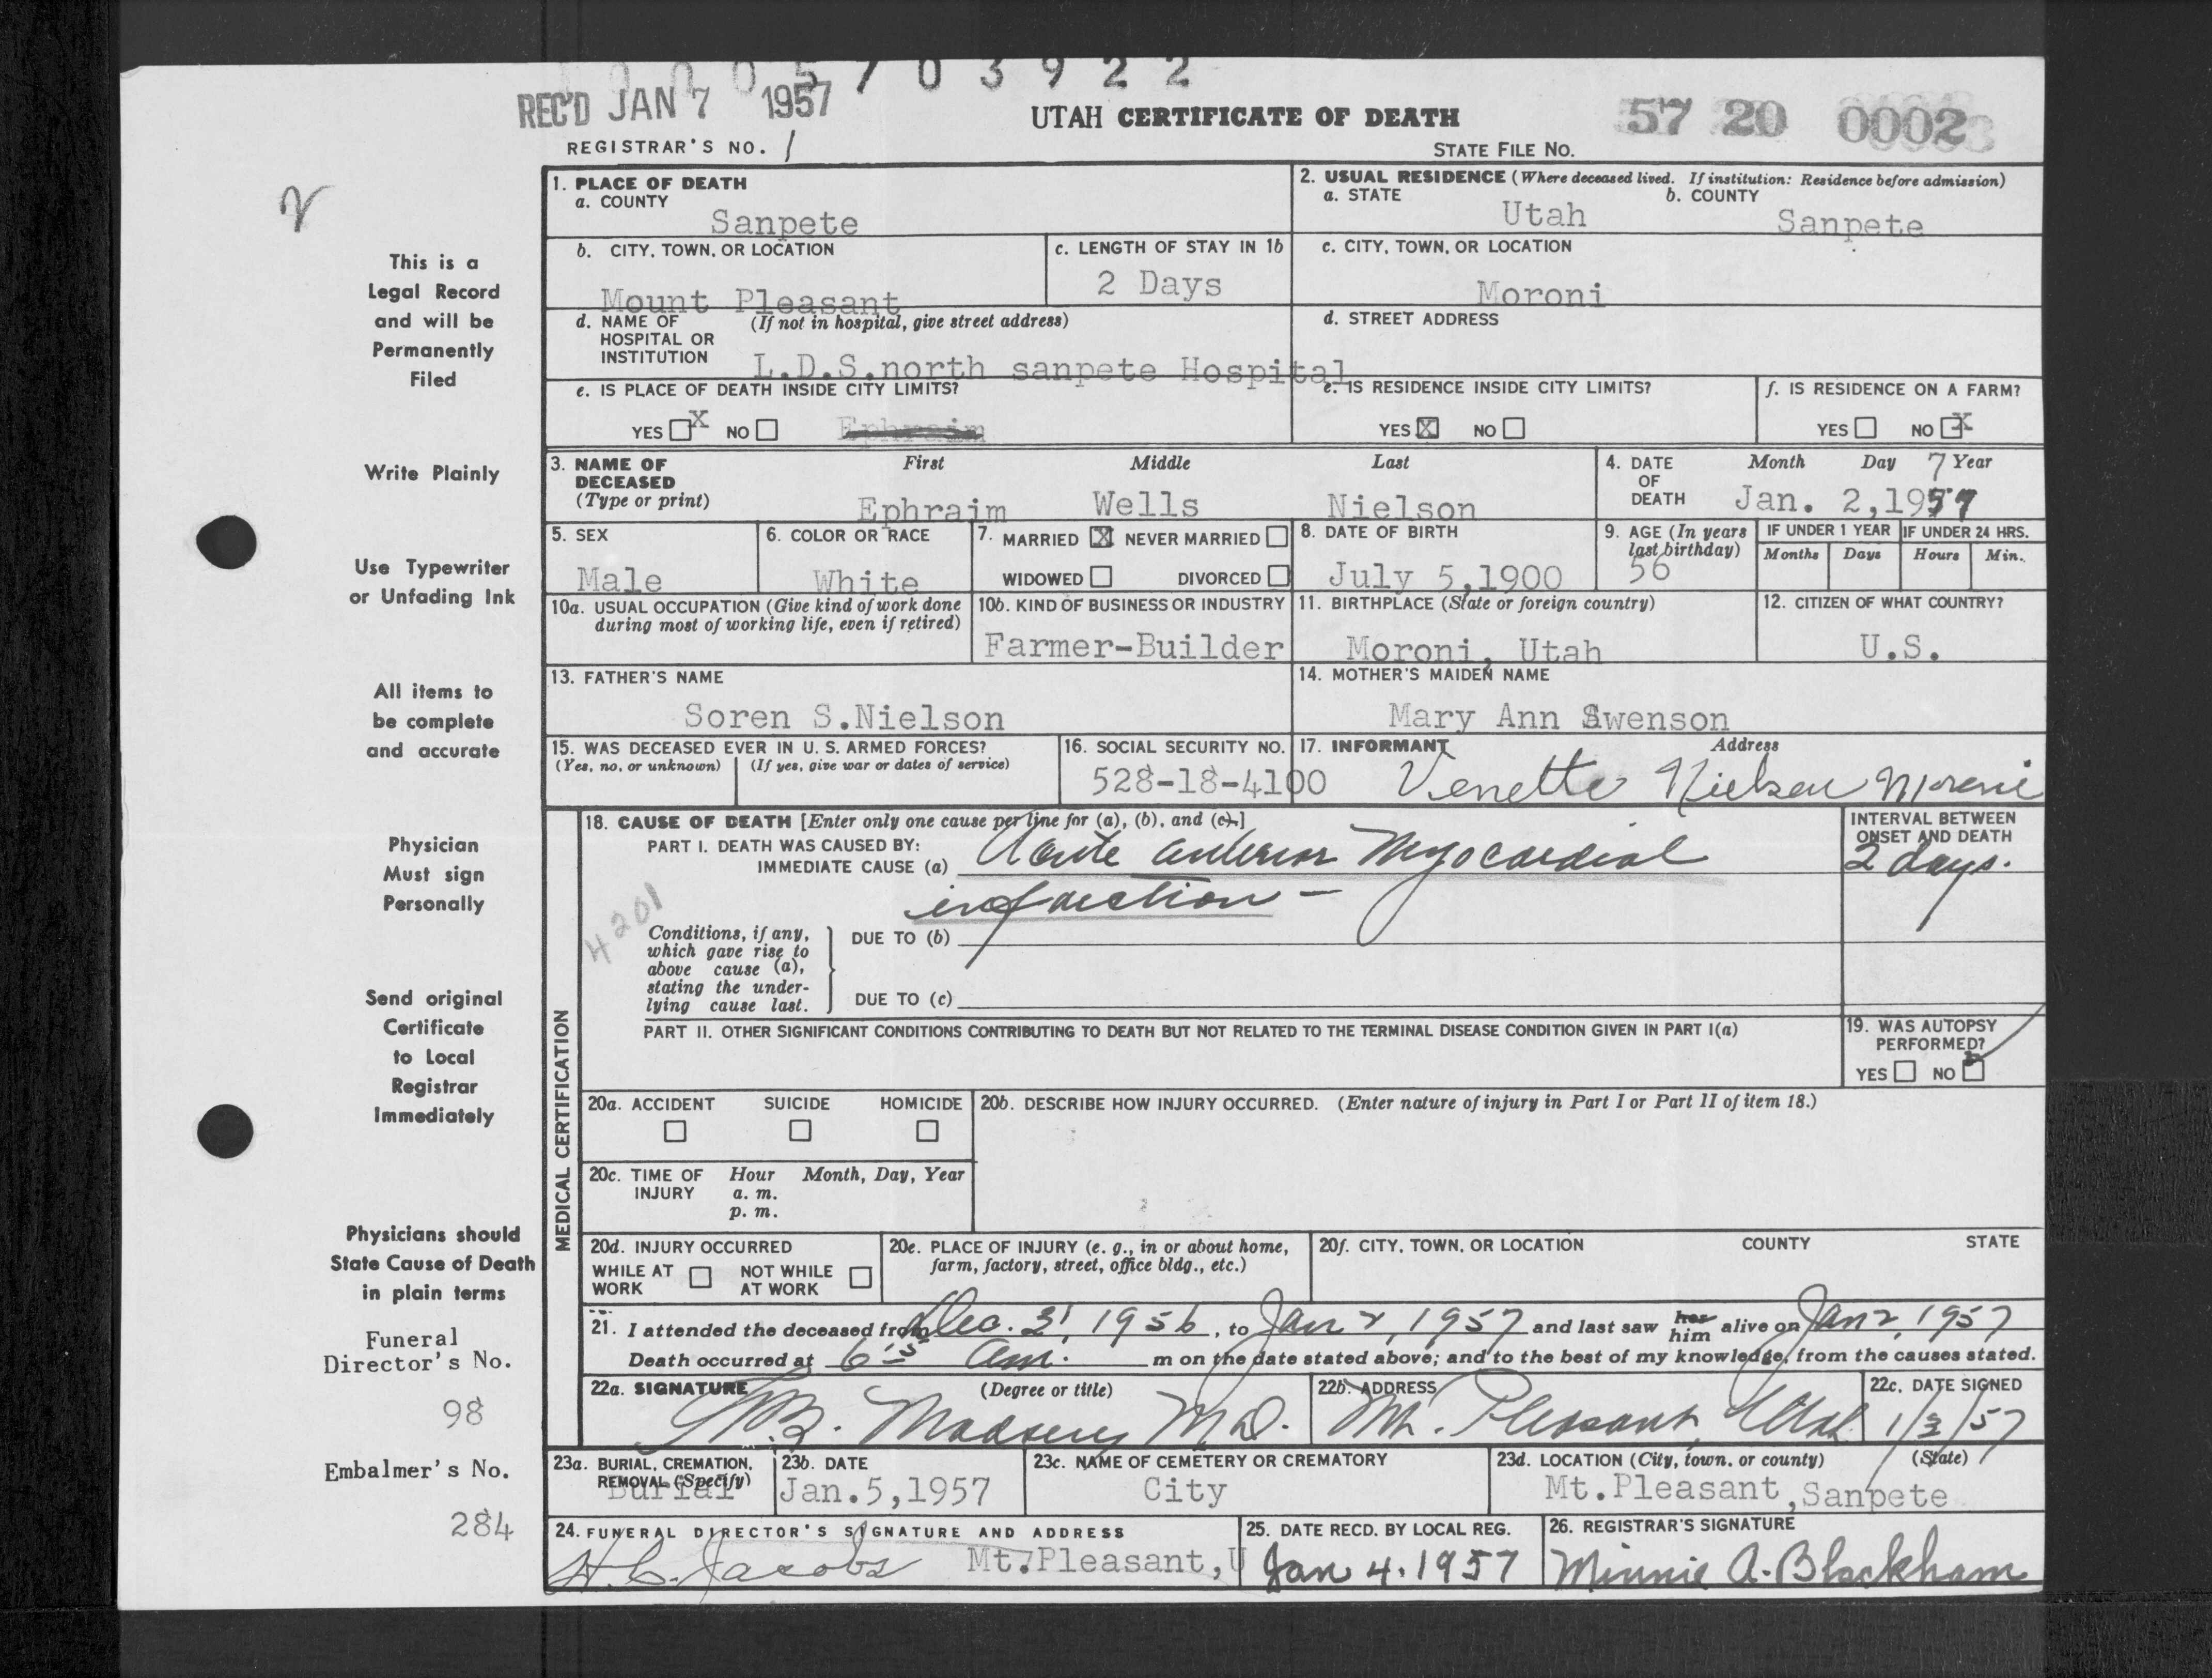 5 7 0 3 9 2 2
REC'D JAN 7 1957
UTAH CERTIFICATE OF DEATH
57 20 0002
REGISTRAR'S NO. 1
STATE FILE NO.
This is a
Legal Record
and will be
Permanently
Filed
Write Plainly
Use Typewriter
or Unfading Ink
All items to
be complete
and accurate
Physician
Must sign
Personally
Send original
Certificate
to Local
Registrar
Immediately
Physicians should
State Cause of Death
in plain terms
Funeral
Director's No.
98
Embalmer's No.
284
1. PLACE OF DEATH
a. COUNTY
Sanpete
2. USUAL RESIDENCE (Where deceased lived. If institution: Residence before admission)
a. STATE b. COUNTY
Utah Sanpete
b. CITY, TOWN, OR LOCATION
Mount Pleasant
c. LENGTH OF STAY IN 1b
2 Days
c. CITY, TOWN, OR LOCATION
Moroni
d. NAME OF (If not in hospital, give street address)
HOSPITAL OR
INSTITUTION L.D.S.north sanpete Hospital
d. STREET ADDRESS
e. IS PLACE OF DEATH INSIDE CITY LIMITS?
YES X NO Ephraim
e. IS RESIDENCE INSIDE CITY LIMITS?
YES X NO
f. IS RESIDENCE ON A FARM?
YES NO X
3. NAME OF DECEASED
(Type or print)
First Middle Last
Ephraim Wells Nielson
4. DATE OF DEATH
Month Day Year
7
Jan. 2,1957
5. SEX
Male
6. COLOR OR RACE
White
7. MARRIED X NEVER MARRIED
WIDOWED DIVORCED
8. DATE OF BIRTH
July 5,1900
9. AGE (In years
last birthday)
56
IF UNDER 1 YEAR IF UNDER 24 HRS.
Months Days Hours Min.
10a. USUAL OCCUPATION (Give kind of work done
during most of working life, even if retired)
10b. KIND OF BUSINESS OR INDUSTRY
Farmer-Builder
11. BIRTHPLACE (State or foreign country)
Moroni, Utah
12. CITIZEN OF WHAT COUNTRY?
U.S.
13. FATHER'S NAME
Soren S.Nielson
14. MOTHER'S MAIDEN NAME
Mary Ann Swenson
15. WAS DECEASED EVER IN U. S. ARMED FORCES?
(Yes, no, or unknown) (If yes, give war or dates of service)
16. SOCIAL SECURITY NO.
528-18-4100
17. INFORMANT Address
Venette Nielson Moroni
MEDICAL CERTIFICATION
18. CAUSE OF DEATH [Enter only one cause per line for (a), (b), and (c).]
PART I. DEATH WAS CAUSED BY:
IMMEDIATE CAUSE (a) Acute anterior Myocardial
infarction -
4201
INTERVAL BETWEEN
ONSET AND DEATH
2 days.
Conditions, if any,
which gave rise to
above cause (a),
stating the under-
lying cause last.
DUE TO (b)
DUE TO (c)
PART II. OTHER SIGNIFICANT CONDITIONS CONTRIBUTING TO DEATH BUT NOT RELATED TO THE TERMINAL DISEASE CONDITION GIVEN IN PART I(a)
19. WAS AUTOPSY
PERFORMED?
YES NO
20a. ACCIDENT SUICIDE HOMICIDE
20b. DESCRIBE HOW INJURY OCCURRED. (Enter nature of injury in Part I or Part II of item 18.)
20c. TIME OF INJURY
Hour Month, Day, Year
a. m.
p. m.
20d. INJURY OCCURRED
WHILE AT WORK NOT WHILE AT WORK
20e. PLACE OF INJURY (e. g., in or about home,
farm, factory, street, office bldg., etc.)
20f. CITY, TOWN, OR LOCATION COUNTY STATE
21. I attended the deceased from Dec. 31, 1956, to Jan 2, 1957 and last saw her him alive on Jan 2, 1957
Death occurred at 6:15 am. m on the date stated above; and to the best of my knowledge, from the causes stated.
22a. SIGNATURE (Degree or title)
Madsen M.D.
22b. ADDRESS
Mt. Pleasant, Utah
22c. DATE SIGNED
1/3/57
23a. BURIAL, CREMATION,
REMOVAL (Specify)
Burial
23b. DATE
Jan.5,1957
23c. NAME OF CEMETERY OR CREMATORY
City
23d. LOCATION (City, town, or county) (State)
Mt.Pleasant,Sanpete
24. FUNERAL DIRECTOR'S SIGNATURE AND ADDRESS
H.C. Jacobs Mt.Pleasant,U
25. DATE RECD. BY LOCAL REG.
Jan 4. 1957
26. REGISTRAR'S SIGNATURE
Minnie A. Blackham